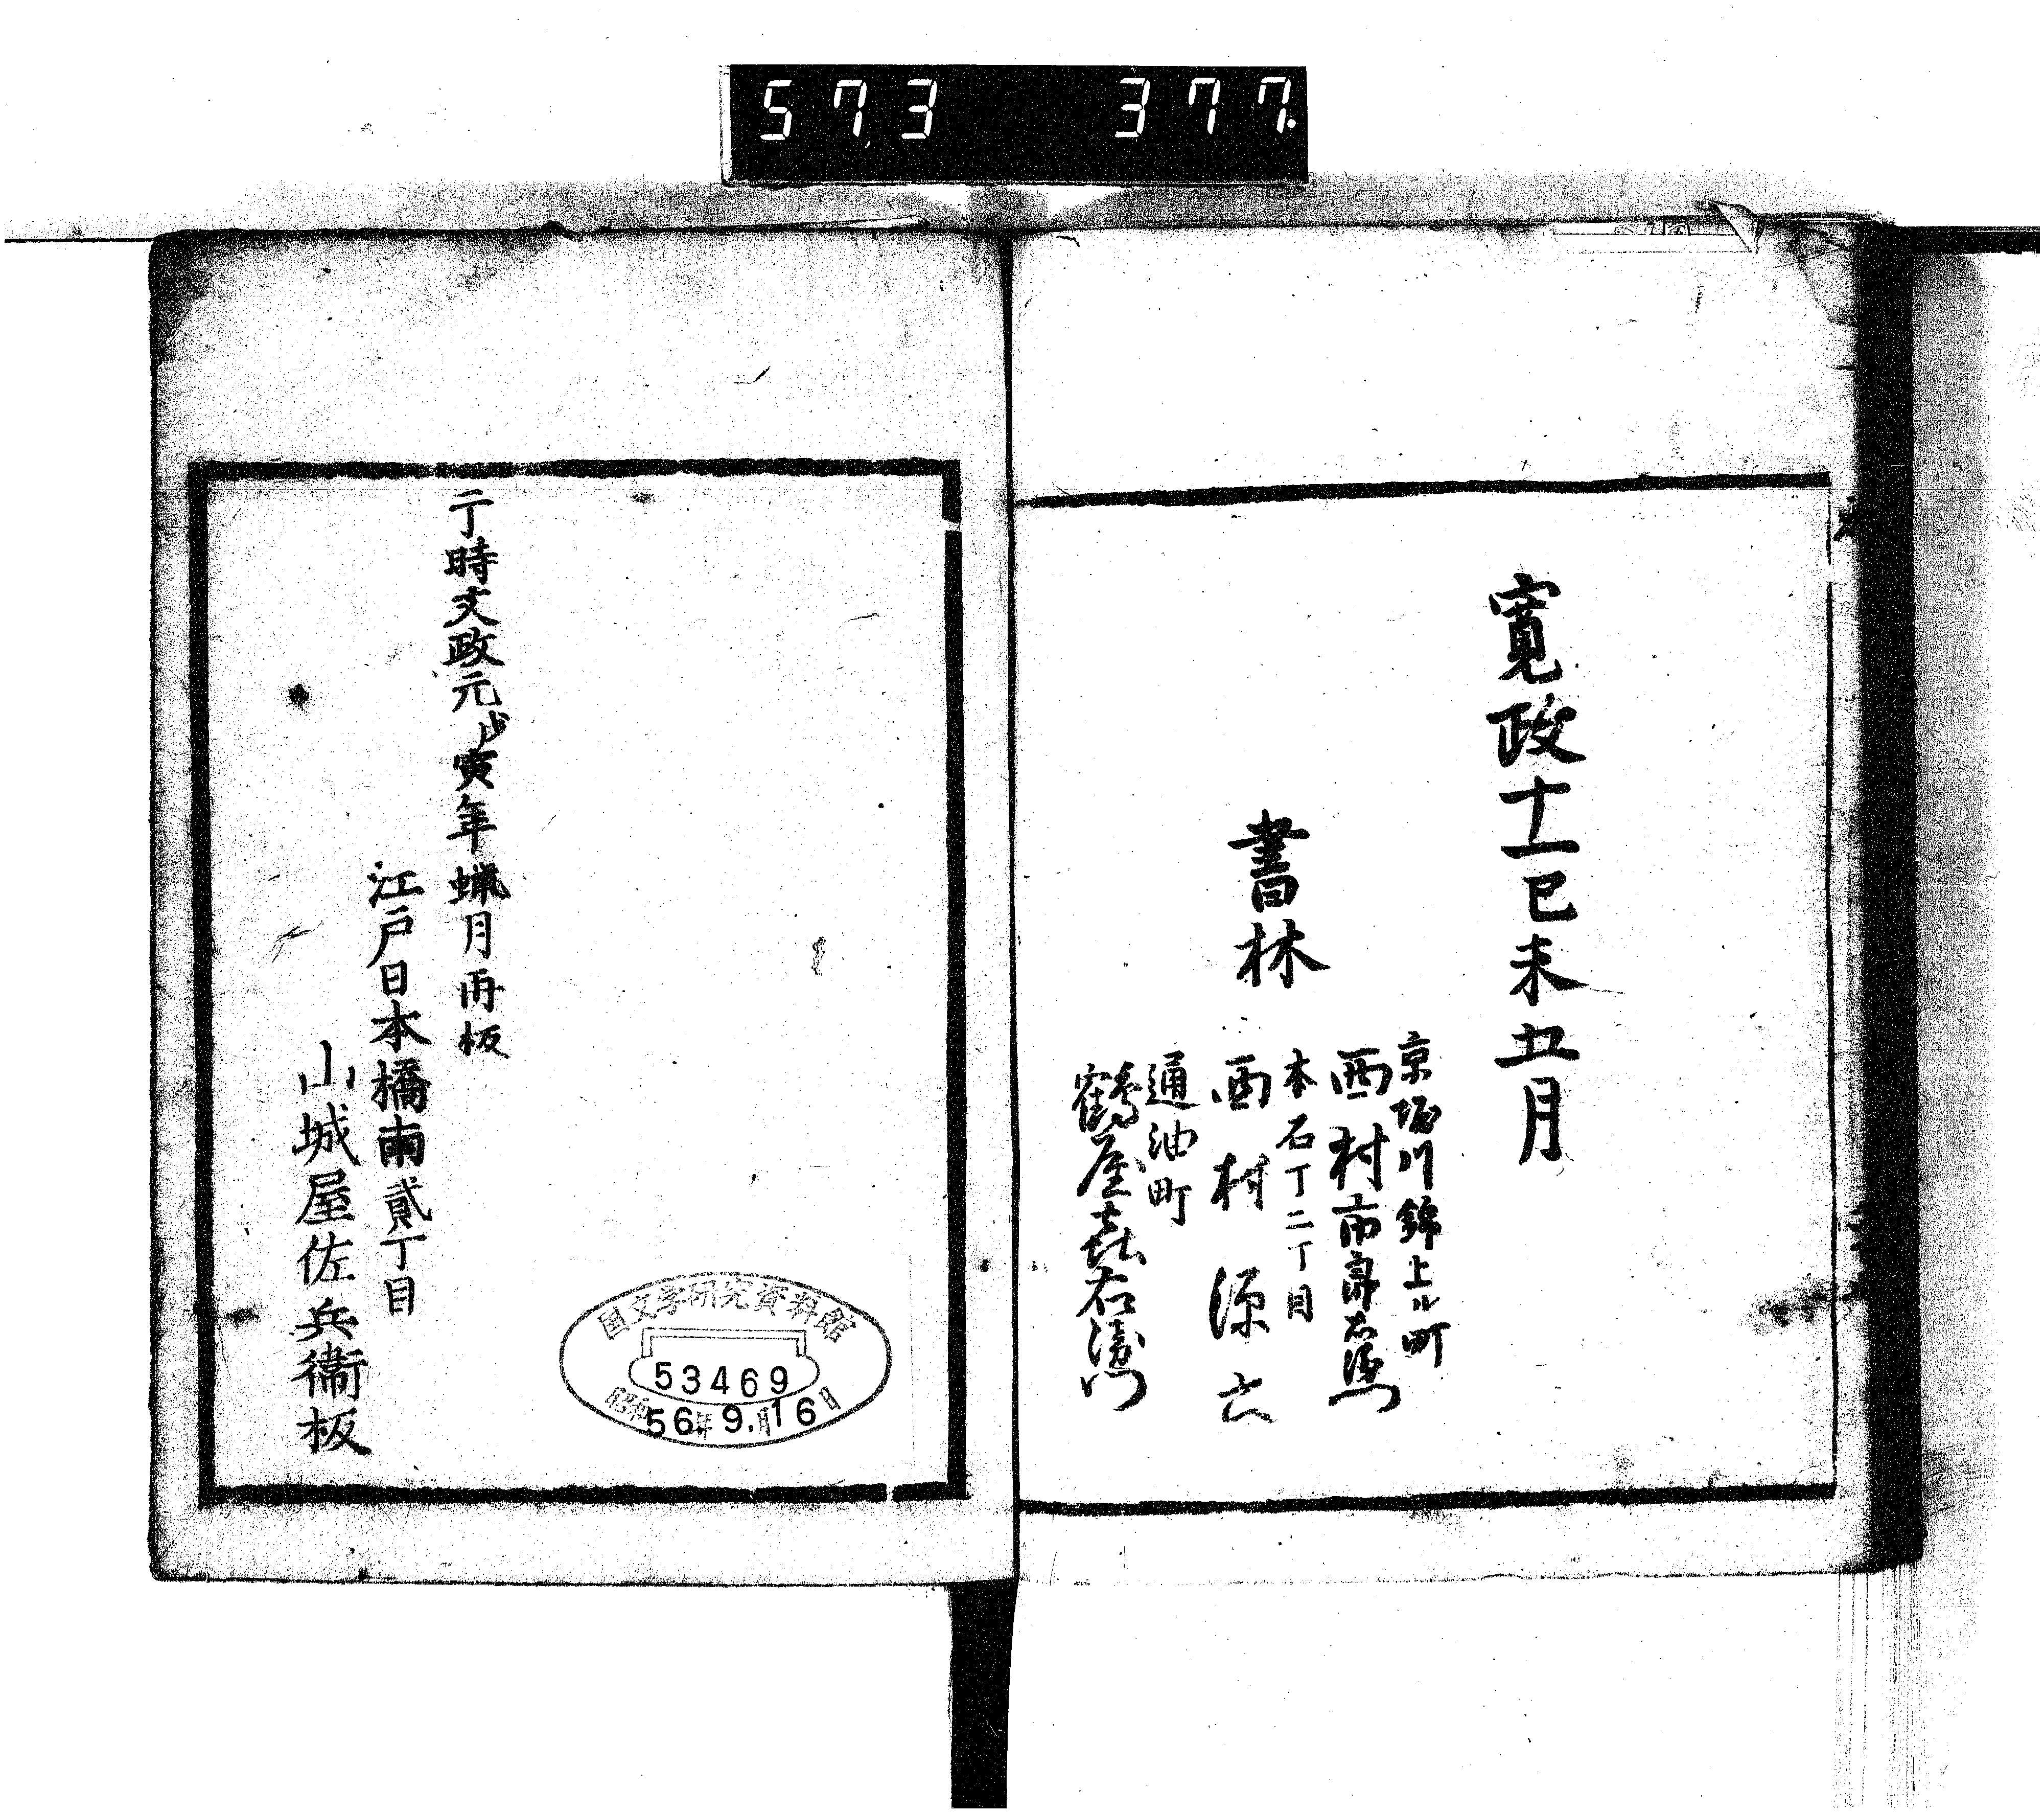 573 377.
寛政十一己未五月
書林
京堀川錦上ル町
西村市郎右衛門
本石丁二丁目
西村源六
通油町
鶴屋喜右衛門
于時文政元戊寅年蝋月再板
江戸日本橋南貳丁目
山城屋佐兵衞板
国文学研究資料館
53469
昭和56年9.月16日